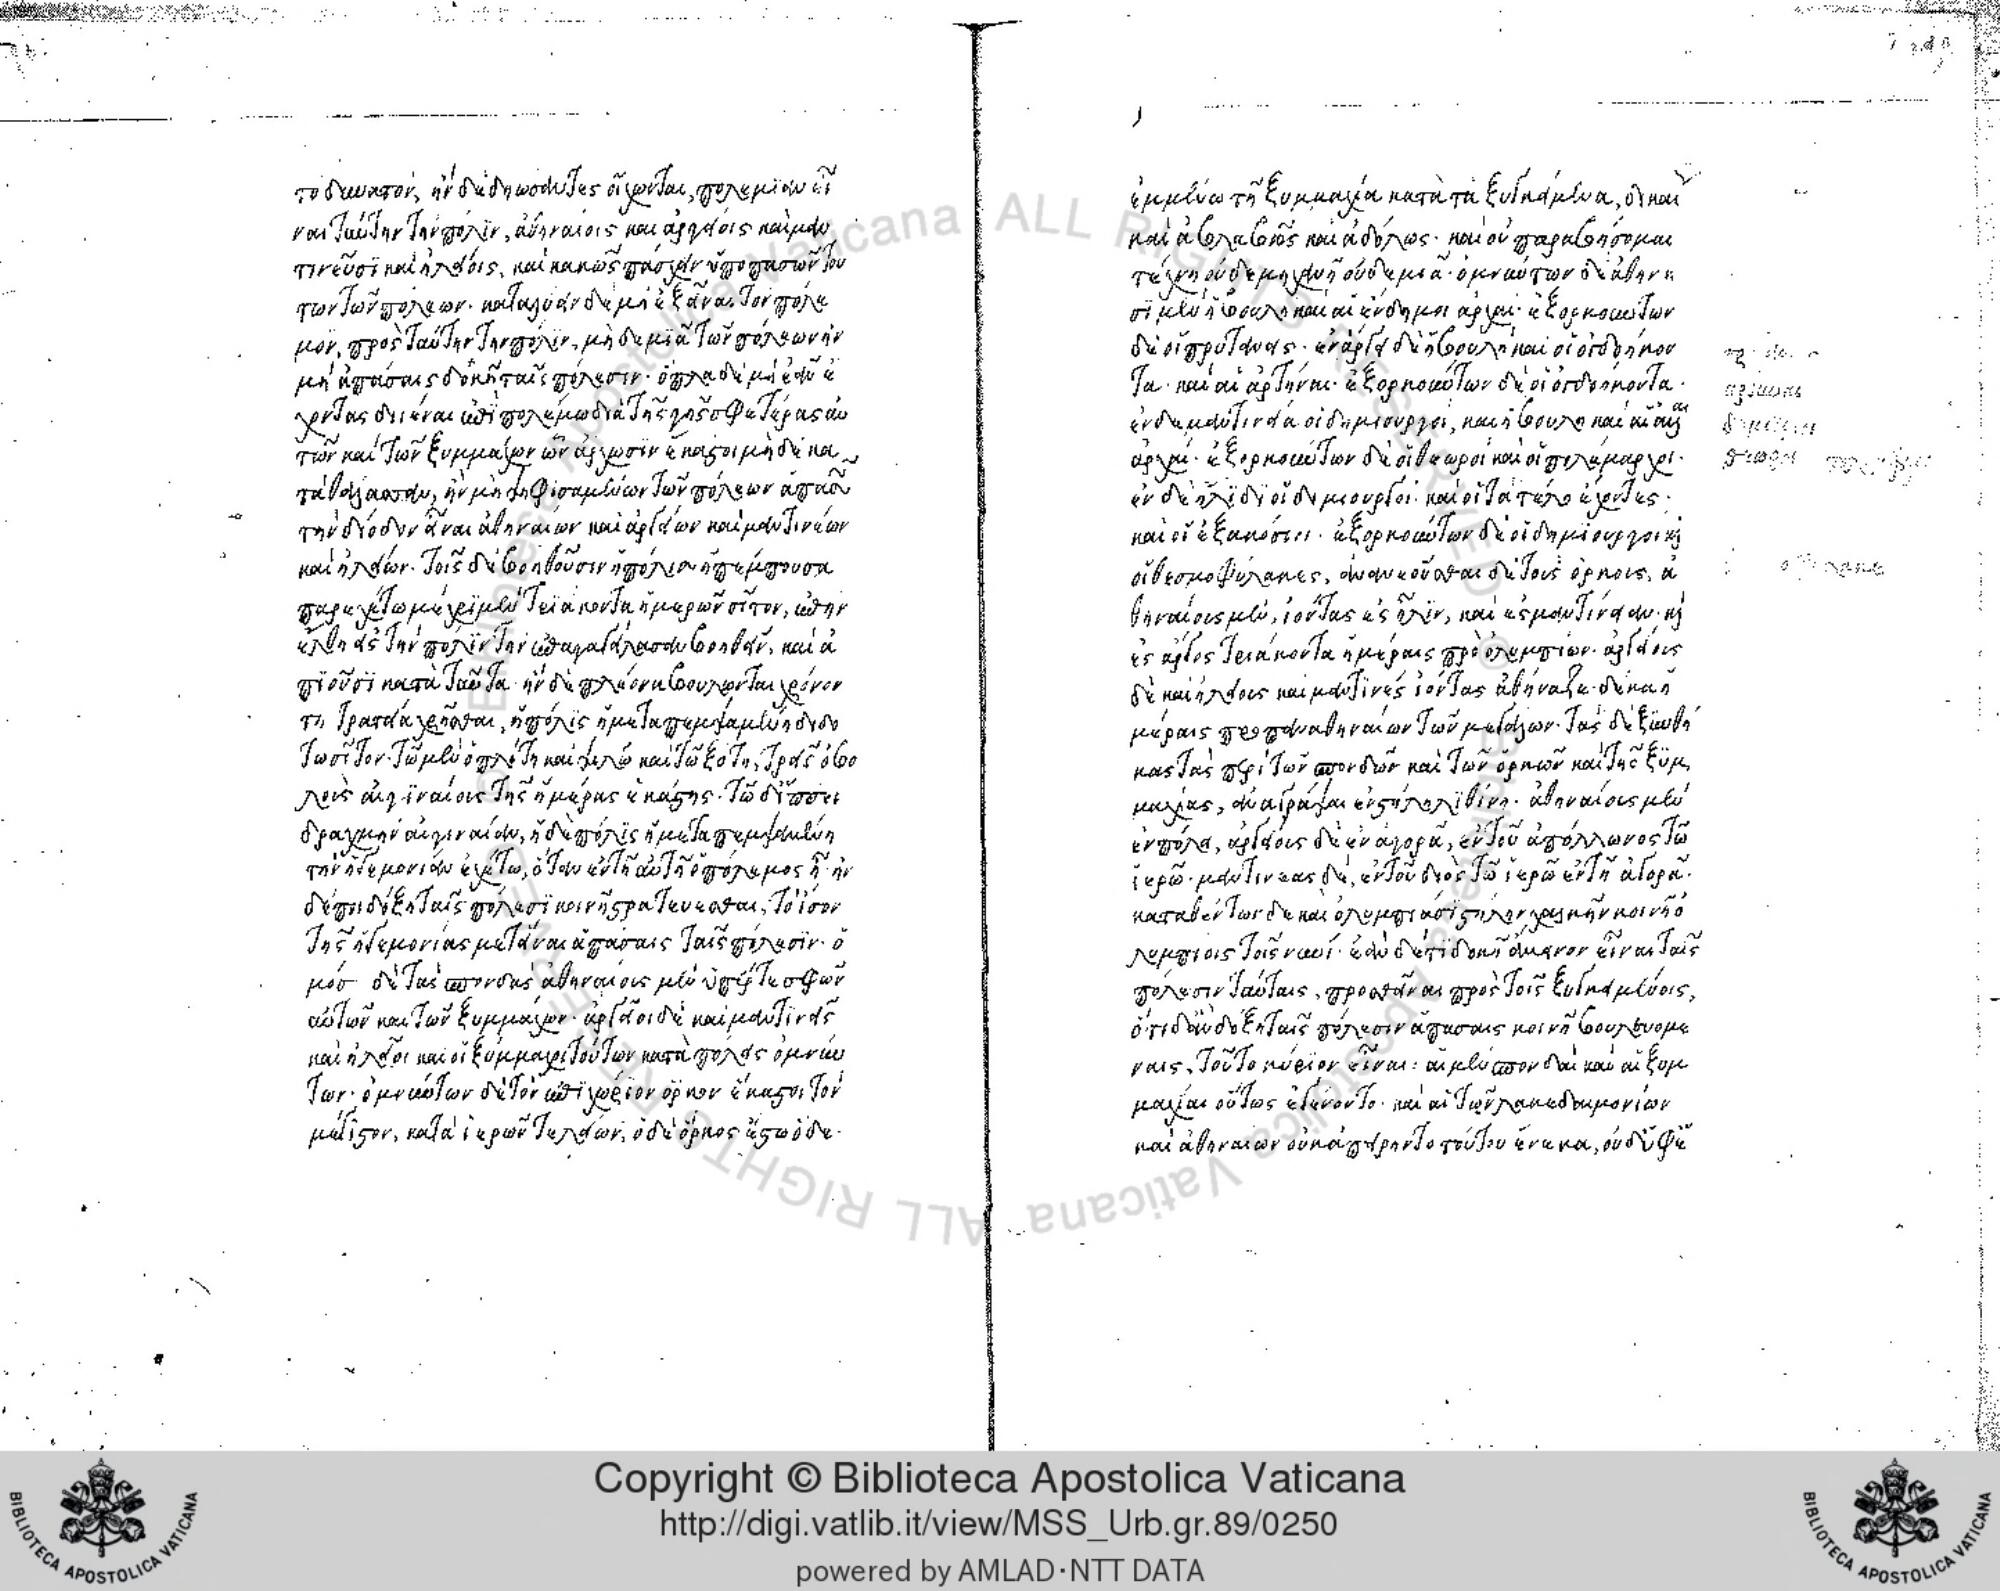 το δυνατόν, ἢν δὲ δηώσαντες οἴχωνται, πολεμίαν εἶ
ναι ταύτην τὴν πόλιν, ἀθηναίοις καὶ ἀργείοις καὶ μαν
τινεῦσι καὶ ἠλείοις, καὶ κακῶς πάσχειν ὑπὸ πασῶν του
των τῶν πόλεων. καταλύειν δὲ μὴ ἐξεῖναι τὸν πόλε
μον, πρὸς ταύτην τὴν πόλιν, μηδεμιᾷ τῶν πόλεων ἢν
μὴ ἁπάσαις δοκῇ ταῖς πόλεσιν. ὅπλα δὲ μὴ ἐᾶν ἔ
χοντας διιέναι ἐπὶ πολέμω διὰ τῆς γῆς σφετέρας αὐ
τῶν καὶ τῶν ξυμμάχων ὧν ἄρχωσιν ἕκαστοι μηδὲ κα
τὰ θάλασσαν, ἢν μὴ ψηφισαμένων τῶν πόλεων ἁπασῶν
τὴν δίοδον εἶναι ἀθηναίων καὶ ἀργείων καὶ μαντινέων
καὶ ἠλείων. τοῖς δὲ βοηθοῦσιν ἡ πόλις ἡ πέμπουσα
παρεχέτω μέχρι μὲν τριάκοντα ἡμερῶν σῖτον, ἐπὴν
ἔλθῃ ἐς τὴν πόλιν τὴν ἐπαγγείλασαν βοηθεῖν, καὶ ἀ
πιοῦσι κατὰ ταῦτα. ἢν δὲ πλέονα βούλωνται χρόνον
τῇ στρατιᾷ χρῆσθαι, ἡ πόλις ἡ μεταπεμψαμένη διδό
τω σῖτον. τῶ μὲν ὁπλίτη καὶ ψιλῶ καὶ τοξότη, τρεῖς ὀβο
λοὺς αἰγιναίους τῆς ἡμέρας ἑκάστης. τῶ δ' ἱππεῖ
δραχμὴν αἰγιναίαν, ἡ δὲ πόλις ἡ μεταπεμψαμένη
τὴν ἡγεμονίαν ἐχέτω, ὅταν ἐν τῇ αὐτῆ ὁ πόλεμος ᾖ. ἢν
δέ ποι δόξῃ ταῖς πόλεσι κοινῇ στρατεύεσθαι, τὸ ἴσον
τῆς ἡγεμονίας μετεῖναι ἁπάσαις ταῖς πόλεσιν. ὀ
μόσ δὲ τὰς σπονδὰς ἀθηναίους μὲν ὑπέρ τε σφῶν
αὐτῶν καὶ τῶν ξυμμάχων. ἀργεῖοι δὲ καὶ μαντινεῖς
καὶ ἠλεῖοι καὶ οἱ ξύμμαχοι τούτων κατὰ πόλεις ὀμνύν
των. ὀμνύντων δὲ τὸν ἐπιχώριον ὅρκον ἕκαστοι τὸν
μέγιστον, κατὰ ἱερῶν τελείων, ὁ δὲ ὅρκος ἔστω ὅδε.
ἐμμενῶ τῇ ξυμμαχία κατὰ τὰ ξυγκείμενα, δικαί
καὶ ἀβλαβῶς καὶ ἀδόλως. καὶ οὐ παραβήσομαι
τέχνῃ οὐδὲ μηχανῇ οὐδεμιᾷ. ὀμνύντων δὲ ἀθήνη
σι μὲν ἡ βουλὴ καὶ αἱ ἔνδημοι ἀρχαί. ἐξορκούντων
δὲ οἱ πρυτάνεις. ἐν ἄργει δὲ ἡ βουλὴ καὶ οἱ ὀγδοήκον
τα. καὶ αἱ ἀρτῦναι. ἐξορκούντων δὲ οἱ ὀγδοήκοντα.
ἐν δὲ μαντινείᾳ οἱ δημιουργοὶ, καὶ ἡ βουλὴ καὶ αἱ ἄλλαι
ἀρχαί. ἐξορκούντων δὲ οἱ θεωροὶ καὶ οἱ πολέμαρχοι.
ἐν δὲ ἤλιδι οἱ δημιουργοί. καὶ οἱ τὰ τέλη ἔχοντες.
καὶ οἱ ἑξακόσιοι. ἐξορκούντων δὲ οἱ δημιουργοὶ καὶ
οἱ θεσμοφύλακες, ἀνανεοῦσθαι δὲ τοὺς ὅρκους, ἀ
θηναίους μὲν, ἰόντας ἐς ἦλιν, καὶ ἐς μαντίνειαν. καὶ
ἐς ἄργος τριάκοντα ἡμέραις πρὸ ὀλυμπίων. ἀργείους
δὲ καὶ ἠλείους καὶ μαντινέας ἰόντας ἀθήναζε. δέκα ἡ
μέραις προ παναθηναίων τῶν μεγάλων. τὰς δὲ ξυνθή
κας τὰς περὶ τῶν σπονδῶν καὶ τῶν ὅρκων καὶ τῆς ξυμ
μαχίας, ἀναγράψαι ἐν στήλῃ λιθίνῃ. ἀθηναίους μὲν
ἐν πόλει, ἀργείους δὲ ἐν ἀγορᾷ, ἐν τοῦ ἀπόλλωνος τῶ
ἱερῶ. μαντινέας δὲ, ἐν τοῦ διὸς τῶ ἱερῶ ἐν τῇ ἀγορᾷ.
καταθέντων δὲ καὶ ὀλυμπιάσι στήλην χαλκῆν κοινῇ ὀ
λυμπίοις τοῖς νυνί. ἐὰν δέ τι δοκῇ ἄμεινον εἶναι ταῖς
πόλεσιν ταύταις, προσθεῖναι πρὸς τοῖς ξυγκειμένοις,
ὅτι δ' ἂν δόξῃ ταῖς πόλεσιν ἁπάσαις κοινῇ βουλευομέ
ναις, τοῦτο κύριον εἶναι: αἱ μὲν σπονδαὶ καὶ αἱ ξυμ
μαχίαι οὕτως ἐγένοντο. καὶ αἱ τῶν λακεδαιμονίων
καὶ ἀθηναίων οὐκ ἀπείρηντο τούτου ἕνεκα, οὐδ' ὑφ' ἑ
Copyright © Biblioteca Apostolica Vaticana
http://digi.vatlib.it/view/MSS_Urb.gr.89/0250
powered by AMLAD·NTT DATA
BIBLIOTECA APOSTOLICA VATICANA
BIBLIOTECA APOSTOLICA VATICANA